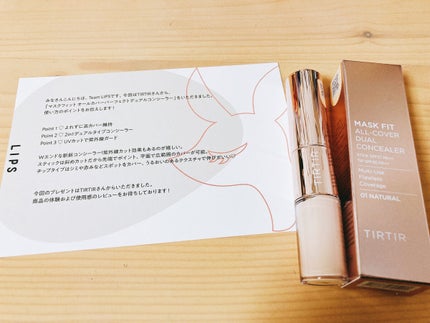 みなさんこんにちは、Team LIPSです。今回はTIRTIRさんから、
「マスクフィット オールカバーパーフェクトデュアルコンシーラー」をいただきました。
使い方のポイントをお伝えします!
Point 1 ♡ よれずに高カバー維持
Point 2 ♡ 2in1デュアルタイプコンシーラー
Point 3 ♡ UVカットで紫外線ガード
Wエンドな斬新コンシーラー!紫外線カット効果もあるのが嬉しい。
スティックは斜めカットだから先端でポイント、平面で広範囲のカバーが可能。
チップタイプはシミや赤みなどスポットをカバー。うるおいがあるテクスチャで伸び広い♡
今回のプレゼントはTIRTIRさんからいただきました。
商品の体験および使用感のレビューをお待ちしております!
LIPS
TIRTIR
MASK FIT
ALL-COVER
DUAL
CONCEALER
Multi-Use
Flawless
Coverage
01 NATURAL
TIRTIR